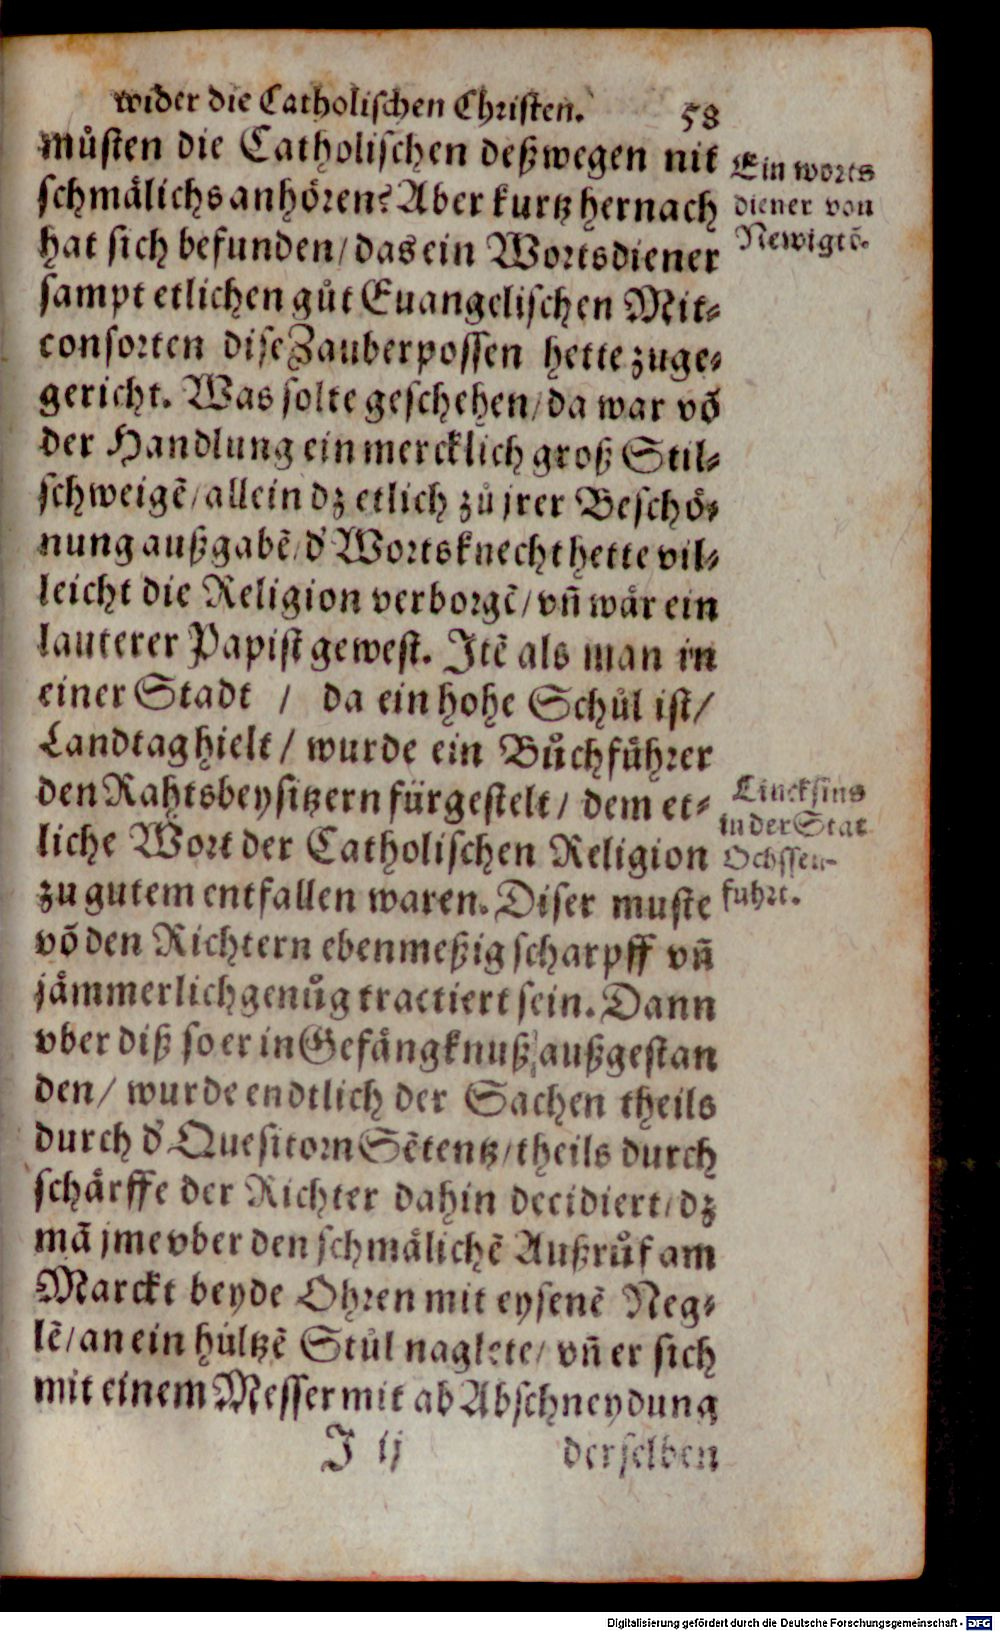 wider die Catholischen Christen. 58
muͤsten die Catholischen deßwegen nit
schmaͤlichs anhoͤren? Aber kurtz hernach
hat sich befunden / das ein Wortsdiener
sampt etlichen guͦt Euangelischen Mit⸗
consorten dise Zauberpossen hette zuge⸗
gericht. Was solte geschehen / da war võ
der Handlung ein mercklich groß Stil⸗
schweigẽ / allein dz etlich zuͦ jrer Beschoͤ⸗
nung außgabẽ / d' Wortsknecht hette vil⸗
leicht die Religion verborgẽ / vñ waͤr ein
lauterer Papist gewest. Itẽ als man in
einer Stadt / da ein hohe Schuͦl ist /
Landtag hielt / wurde ein Buͦchfuͤhrer
den Rahtsbeysitzern fürgestelt / dem et⸗
liche Wort der Catholischen Religion
zu gutem entfallen waren. Diser muste
võ den Richtern ebenmeßig scharpff vñ
jaͤmmerlich genuͦg tractiert sein. Dann
vber diß so er in Gefaͤngknuß außgestan
den / wurde endtlich der Sachen theils
durch d' Quesitorn Sẽtentz / theils durch
schaͤrffe der Richter dahin decidiert / dz
mã jme vber den schmaͤlichẽ Außruͦf am
Marckt beyde Ohren mit eysenẽ Neg⸗
lẽ / an ein hültzẽ Stuͦl naglete / vñ er sich
mit einem Messer mit ab Abschneydung
J ij derselben
Ein worts
diener von
Newigtõ.
in der Stat
Ochssen-
fuhrt.
Digitalisierung gefördert durch die Deutsche Forschungsgemeinschaft - DFG